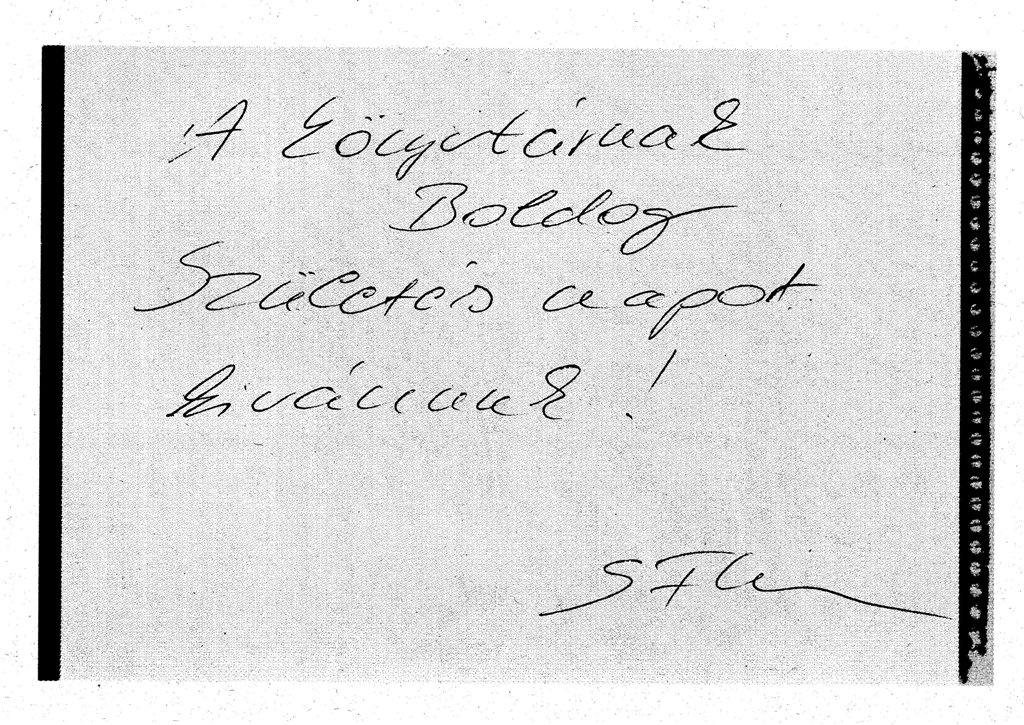 A könyvtárnak
Boldog
Születés napot
kivánunk!